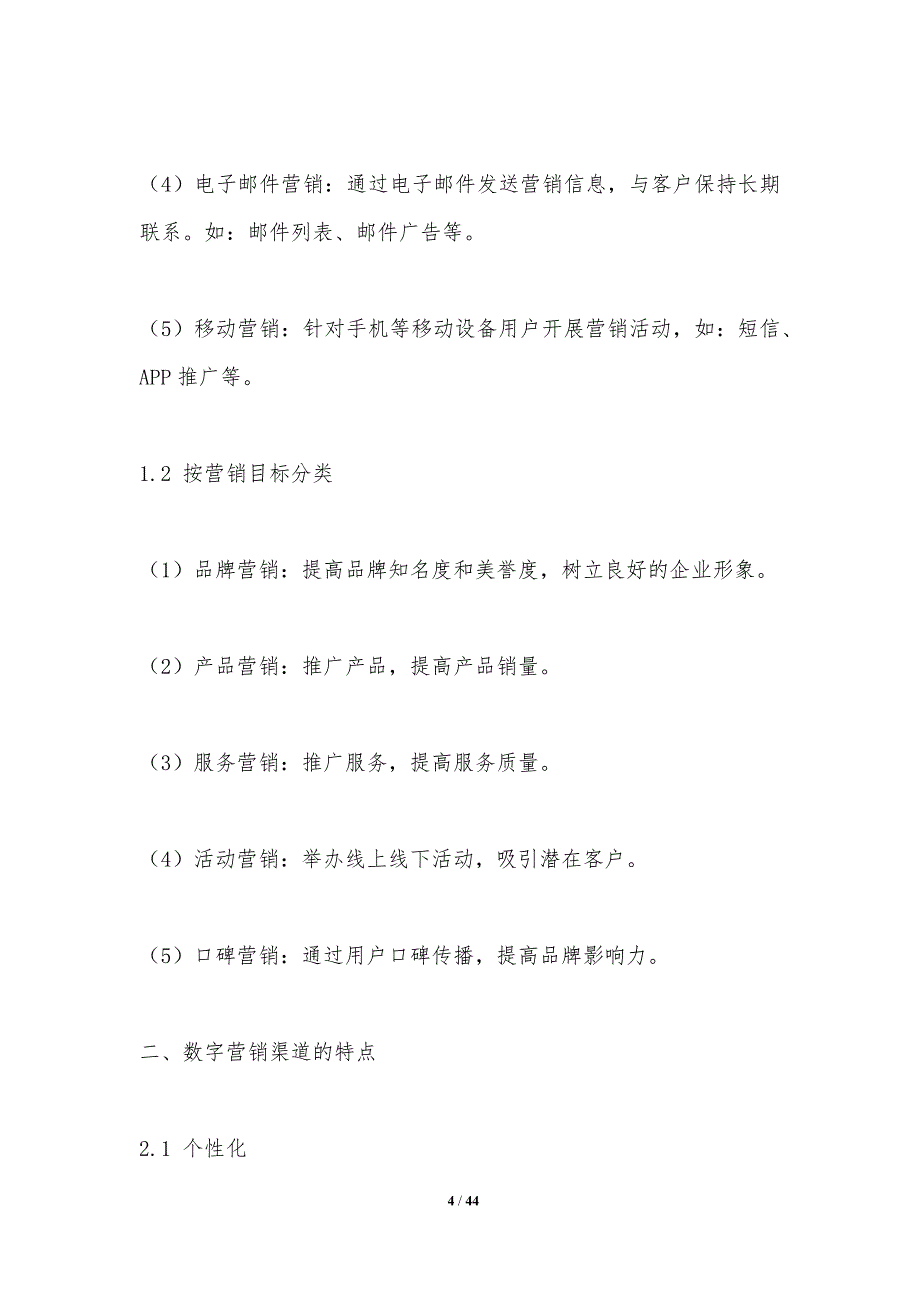 （4）电子邮件营销：通过电子邮件发送营销信息，与客户保持长期
联系。如：邮件列表、邮件广告等。
（5）移动营销：针对手机等移动设备用户开展营销活动，如：短信、
APP 推广等。
1.2 按营销目标分类
（1）品牌营销：提高品牌知名度和美誉度，树立良好的企业形象。
（2）产品营销：推广产品，提高产品销量。
（3）服务营销：推广服务，提高服务质量。
（4）活动营销：举办线上线下活动，吸引潜在客户。
（5）口碑营销：通过用户口碑传播，提高品牌影响力。
二、数字营销渠道的特点
2.1 个性化
4 / 44